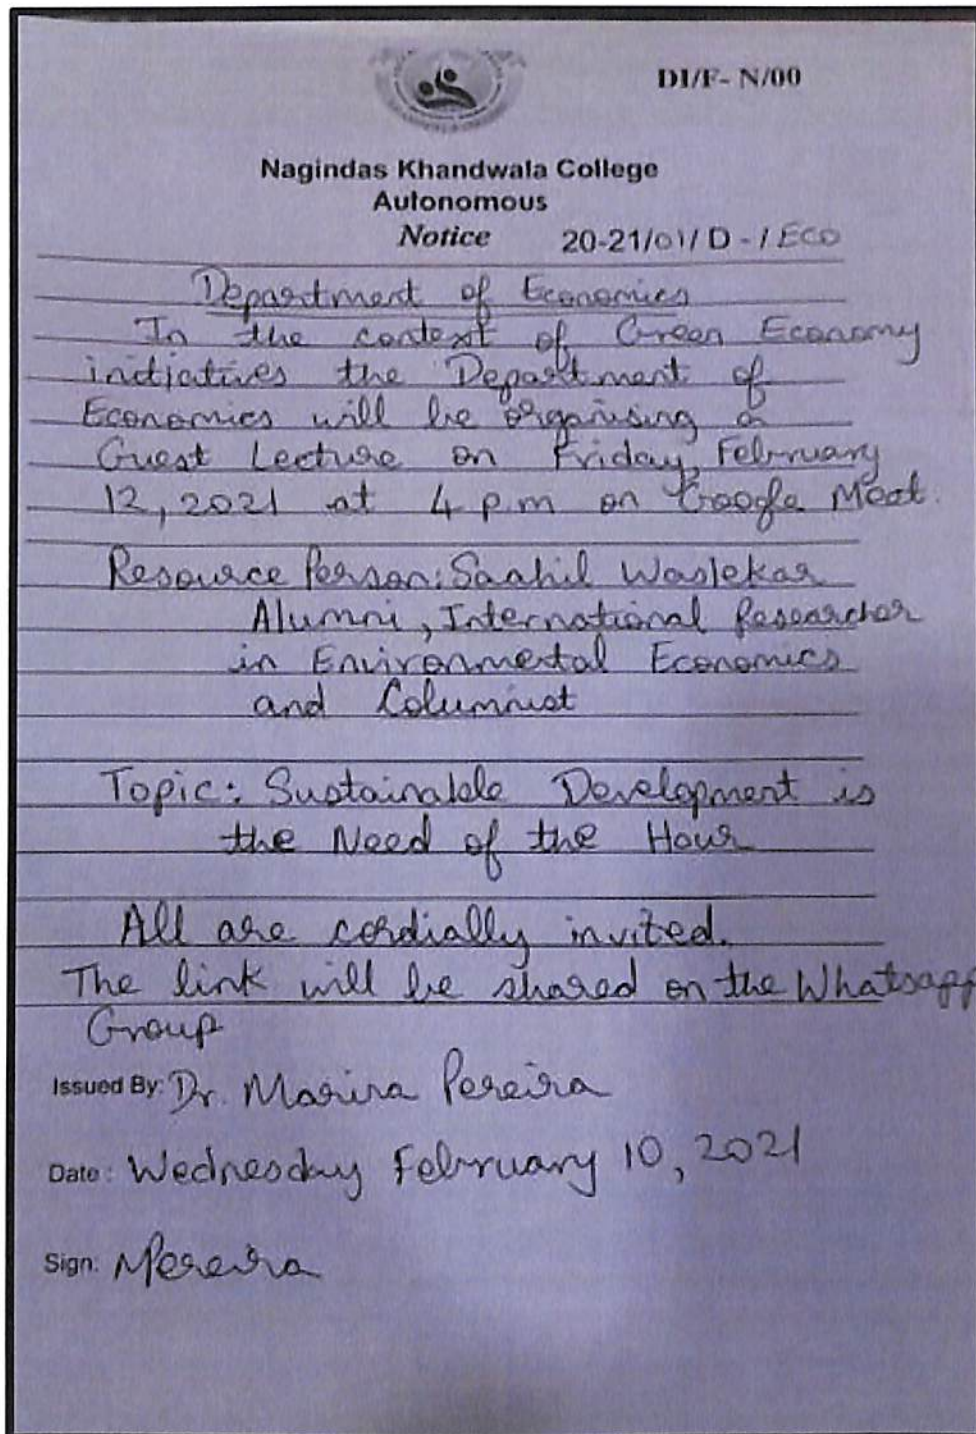 DI/F- N/00
Nagindas Khandwala College
Autonomous
Notice 20-21/01/ D - / ECO
Department of Economics
In the context of Green Economy
initiatives the Department of
Economics will be organising a
Guest Lecture on Friday, February
12, 2021 at 4 p.m on Google Meet.
Resource Person: Saahil Waslekar
Alumni, International Researcher
in Environmental Economics
and Columnist
Topic: Sustainable Development is
the Need of the Hour
All are cordially invited.
The link will be shared on the Whatsapp
Group
Issued By: Dr. Marina Pereira
Date: Wednesday February 10, 2021
Sign: MPereira